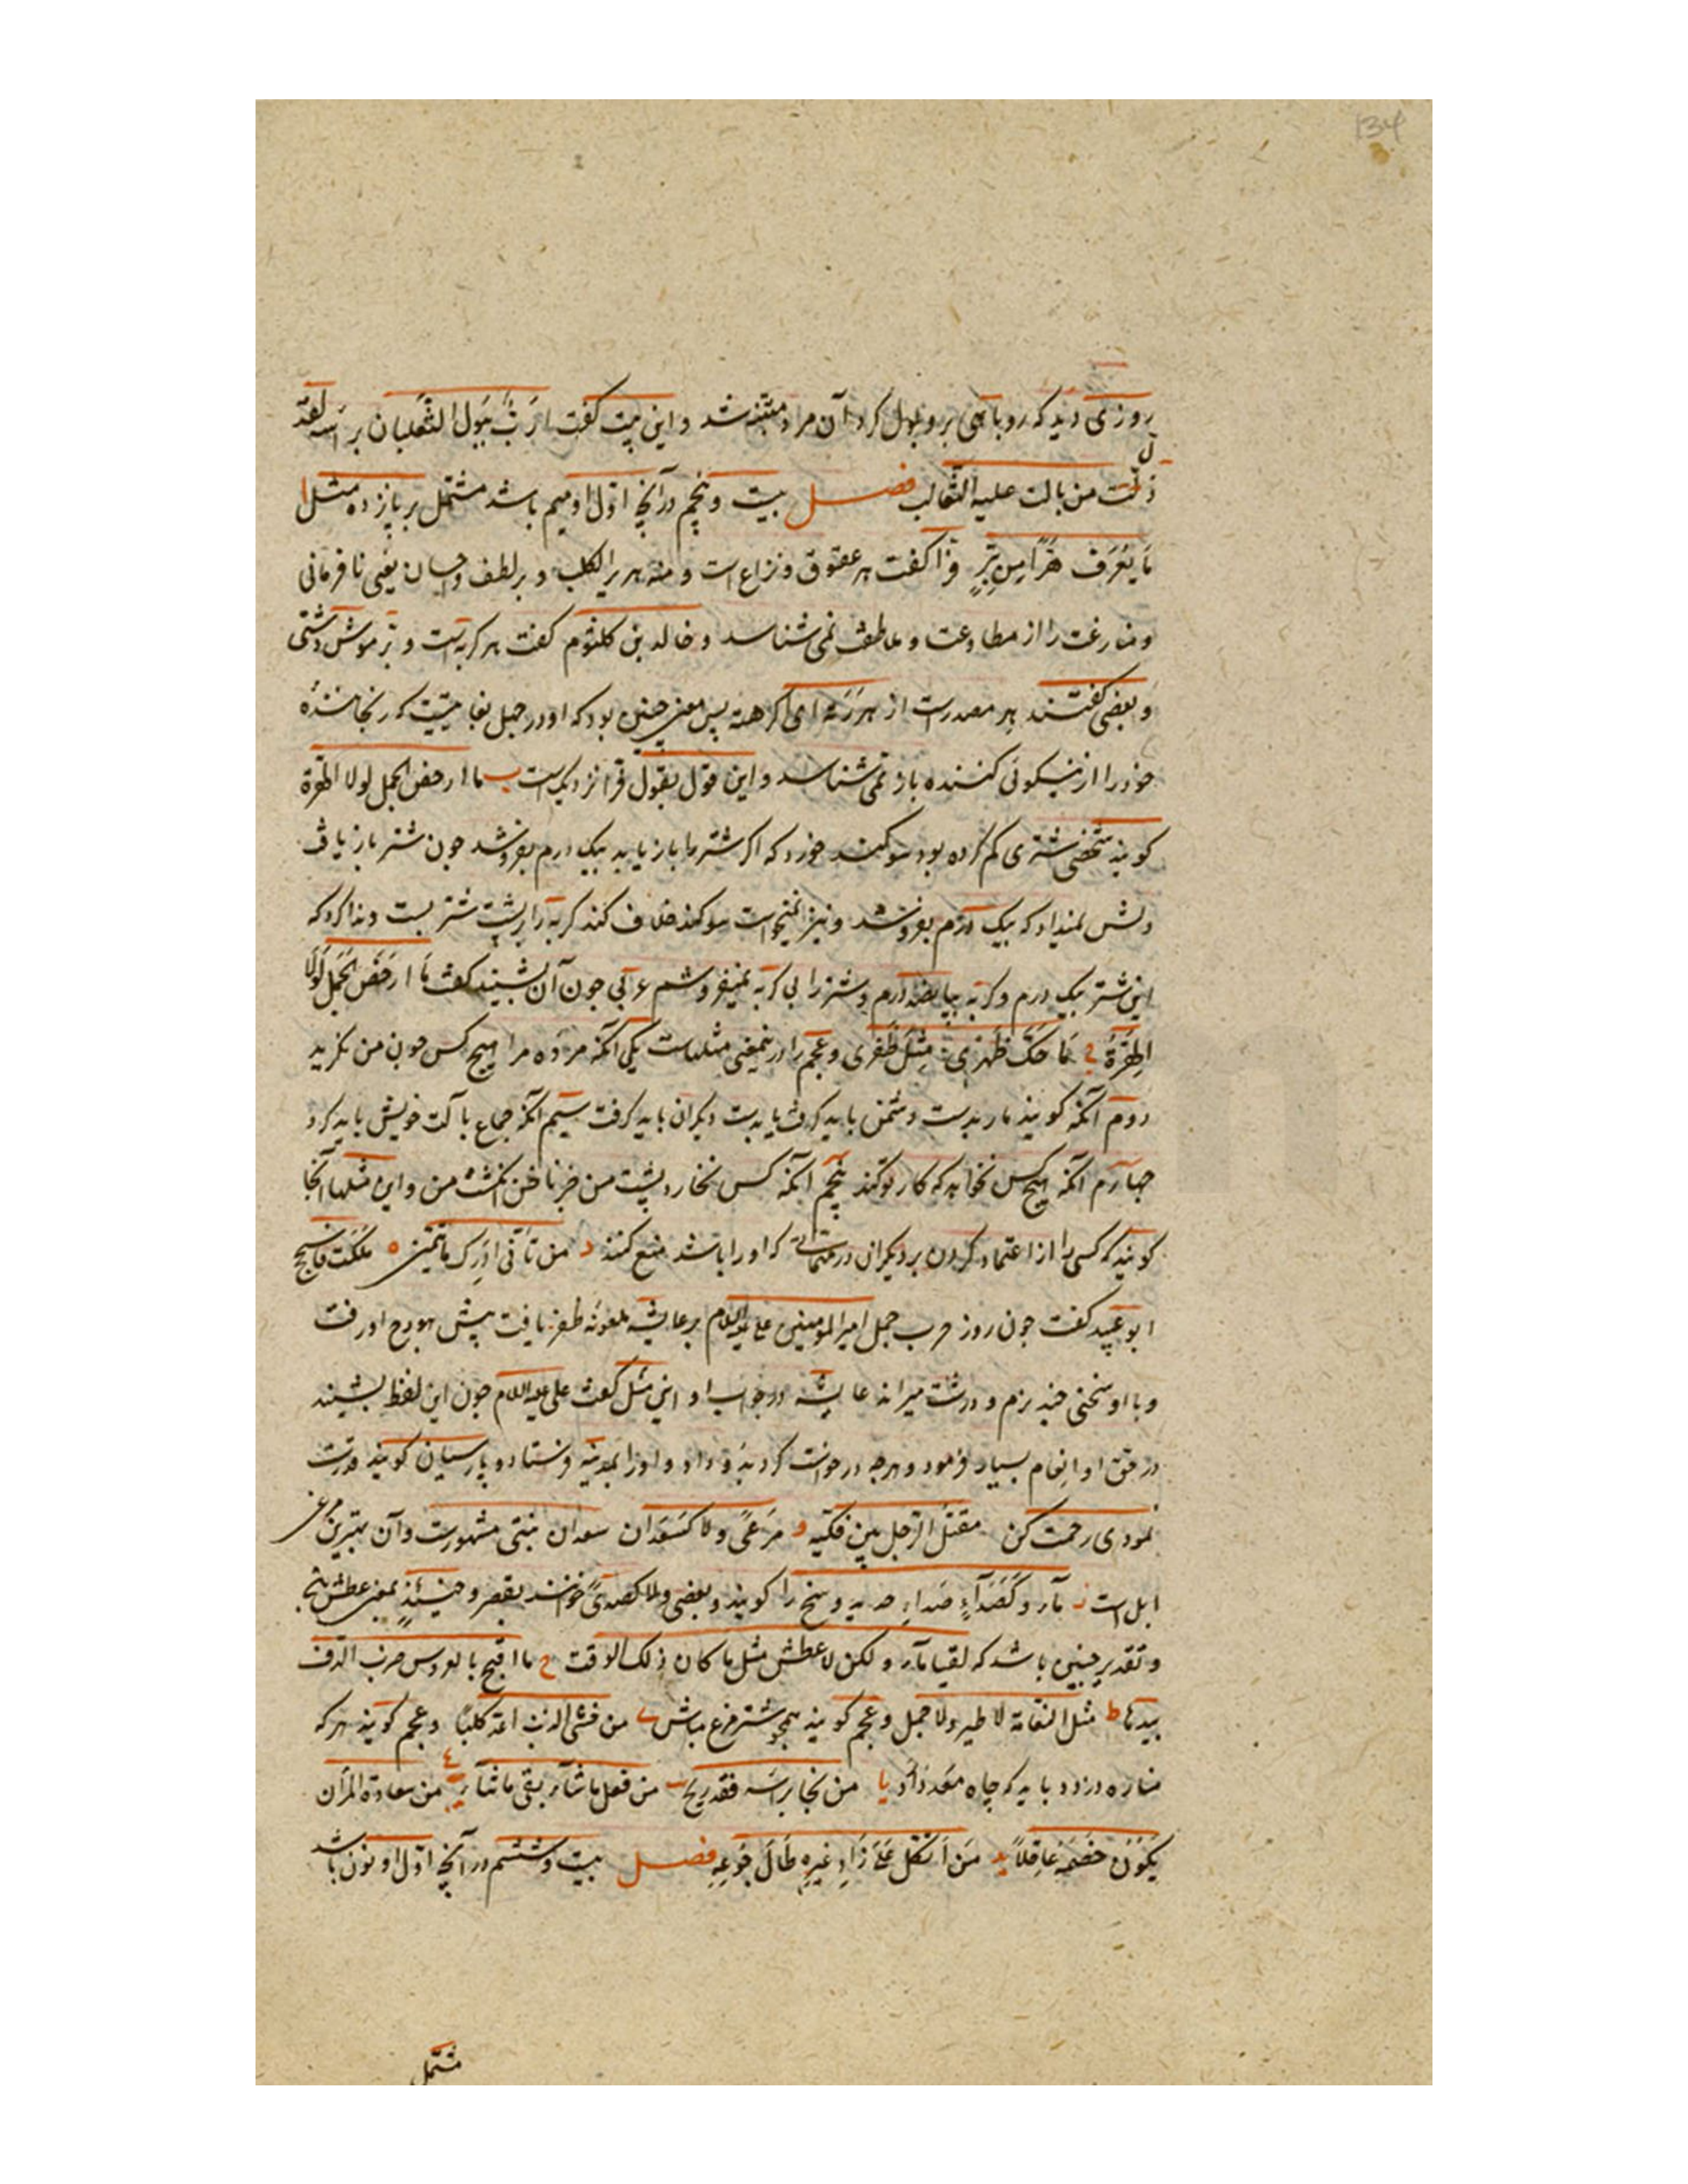 134
روزی دید که روباهی برو بول کرد آن مرد متنبه شد و این بیت گفت ارَبٌّ یبول الثعلبان براسه لقد
ذلّت من بالت علیه الثعالب فصل بیست و پنجم در آنچه اوّل او میم باشد مشتمل بر پانزده مثل ا
مَا یَعْرِفُ هِرًّا مِن بِرٍّ فرّا گفت هر عقوق و نزاع است و منه هریر الکلب و بر لطف و احسان یعنی نافرمانی
و منازعت را از مطاوعت و عاطفت نمی شناسد و خالد بن کلثوم گفت هر کربه است و بر موش دشتی
و بعضی گفتند هر مصدرست از هررته ای اکرهته پس معنی چنین بود که او در جهل بغایتیست که رنجاننده
خود را از نیکوئی کننده باز نمی شناسد و این قول بقول فرا نزدیکست ب ما ارخص الجمل لولا الهرة
کویند شخصی شتری کم کرده بود سوکند خورد که اکر شتر را باز یابد بیک درم بفروشد جون شتر باز یافت
دلش نمیداد که بیک درم بفروشد و نیز نمیخواست سوکند خلاف کند کربه را بر پشت شتر بست و ندا کرد که
این شتر بیک درم و کربه بپانصد درم و شتر را بی کربه نمیفروشم اعرابی جون آن بشنید کفت مَا ارخَصَ الجَمَل لَولا
الهِرَّةُ ج مَا حَکَّ ظَهْرِی مِثْلُ ظُفری و عجم را درین معنی مثلهاست یکی آنکه مرده مرا هیچ کس جون من نکرید
دوم آنکه کویند مار بدست دشمن باید کرفت یا بدست دیکران باید کرفت سیم آنکه جماع با آلت خویش باید کرد
جهارم آنکه هیچ کس نخواهد که کار تو کند پنجم آنکه کس نخارد پشت من جز ناخن انکشت من و این مثلها آنجا
کویند که کسی را از اعتماد کردن بر دیکران در مهماتی که او را باشد منع کنند د من تأنّی ادرک ما تمنی ه ملکت فاسجح
ابو عبید کفت جون روز حرب جمل امیرالمومنین علی علیه السلام بر عایشه ملعونه ظفر یافت پیش هودج او رفت
و با او سخنی جند نرم و درشت میراند عایشه در جواب او این مثل کفت علی علیه السلام جون این لفظ بشنید
در حق او انعام بسیار فرمود و هرجه درخواست کرد بدو داد و او را بمدینه فرستاد و پارسیان کویند قدرت
نمودی رحمت کن مقتل الرّجل بین فکّیه و مَرْعًی ولا کسَعْدان سعدان نبتی مشهورست و آن بهترین مرعی
ابل است ز مآء و لا کَصَدآءٍ و بعضی ولا کصدًی خوانند بقصر و حینئذٍ بمعنی عطش
و تقدیر چنین باشد که لقیا مآء و لکن لا عطش مثل ما کان ذلک الوقت ح ما اقبح بالعروس ضرب الدف
بیدها ط مثل النعامة لا طیر ولا جمل و عجم کویند همجو شترمرغ مباش ی من فشی الذئب اعد کلبًا و عجم کویند هر که
مناره دزدد باید که جاه معدّ دارد یا من نجا براسه فقد ربح یب من فعل ما شآء لقی ما شآء یج من سعادة المرء ان
یَکُونَ خَصمُهُ عَاقِلاً ید مَن اتّکل عَلی زَادِ غیرِه طَالَ جُوعُه فصل بیست و ششم در آنچه اوّل او نون باشد
مشتمل